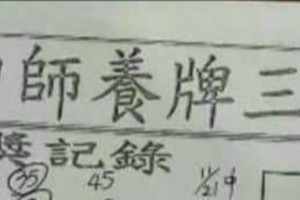 師養牌三
記錄
35 45 11/21中